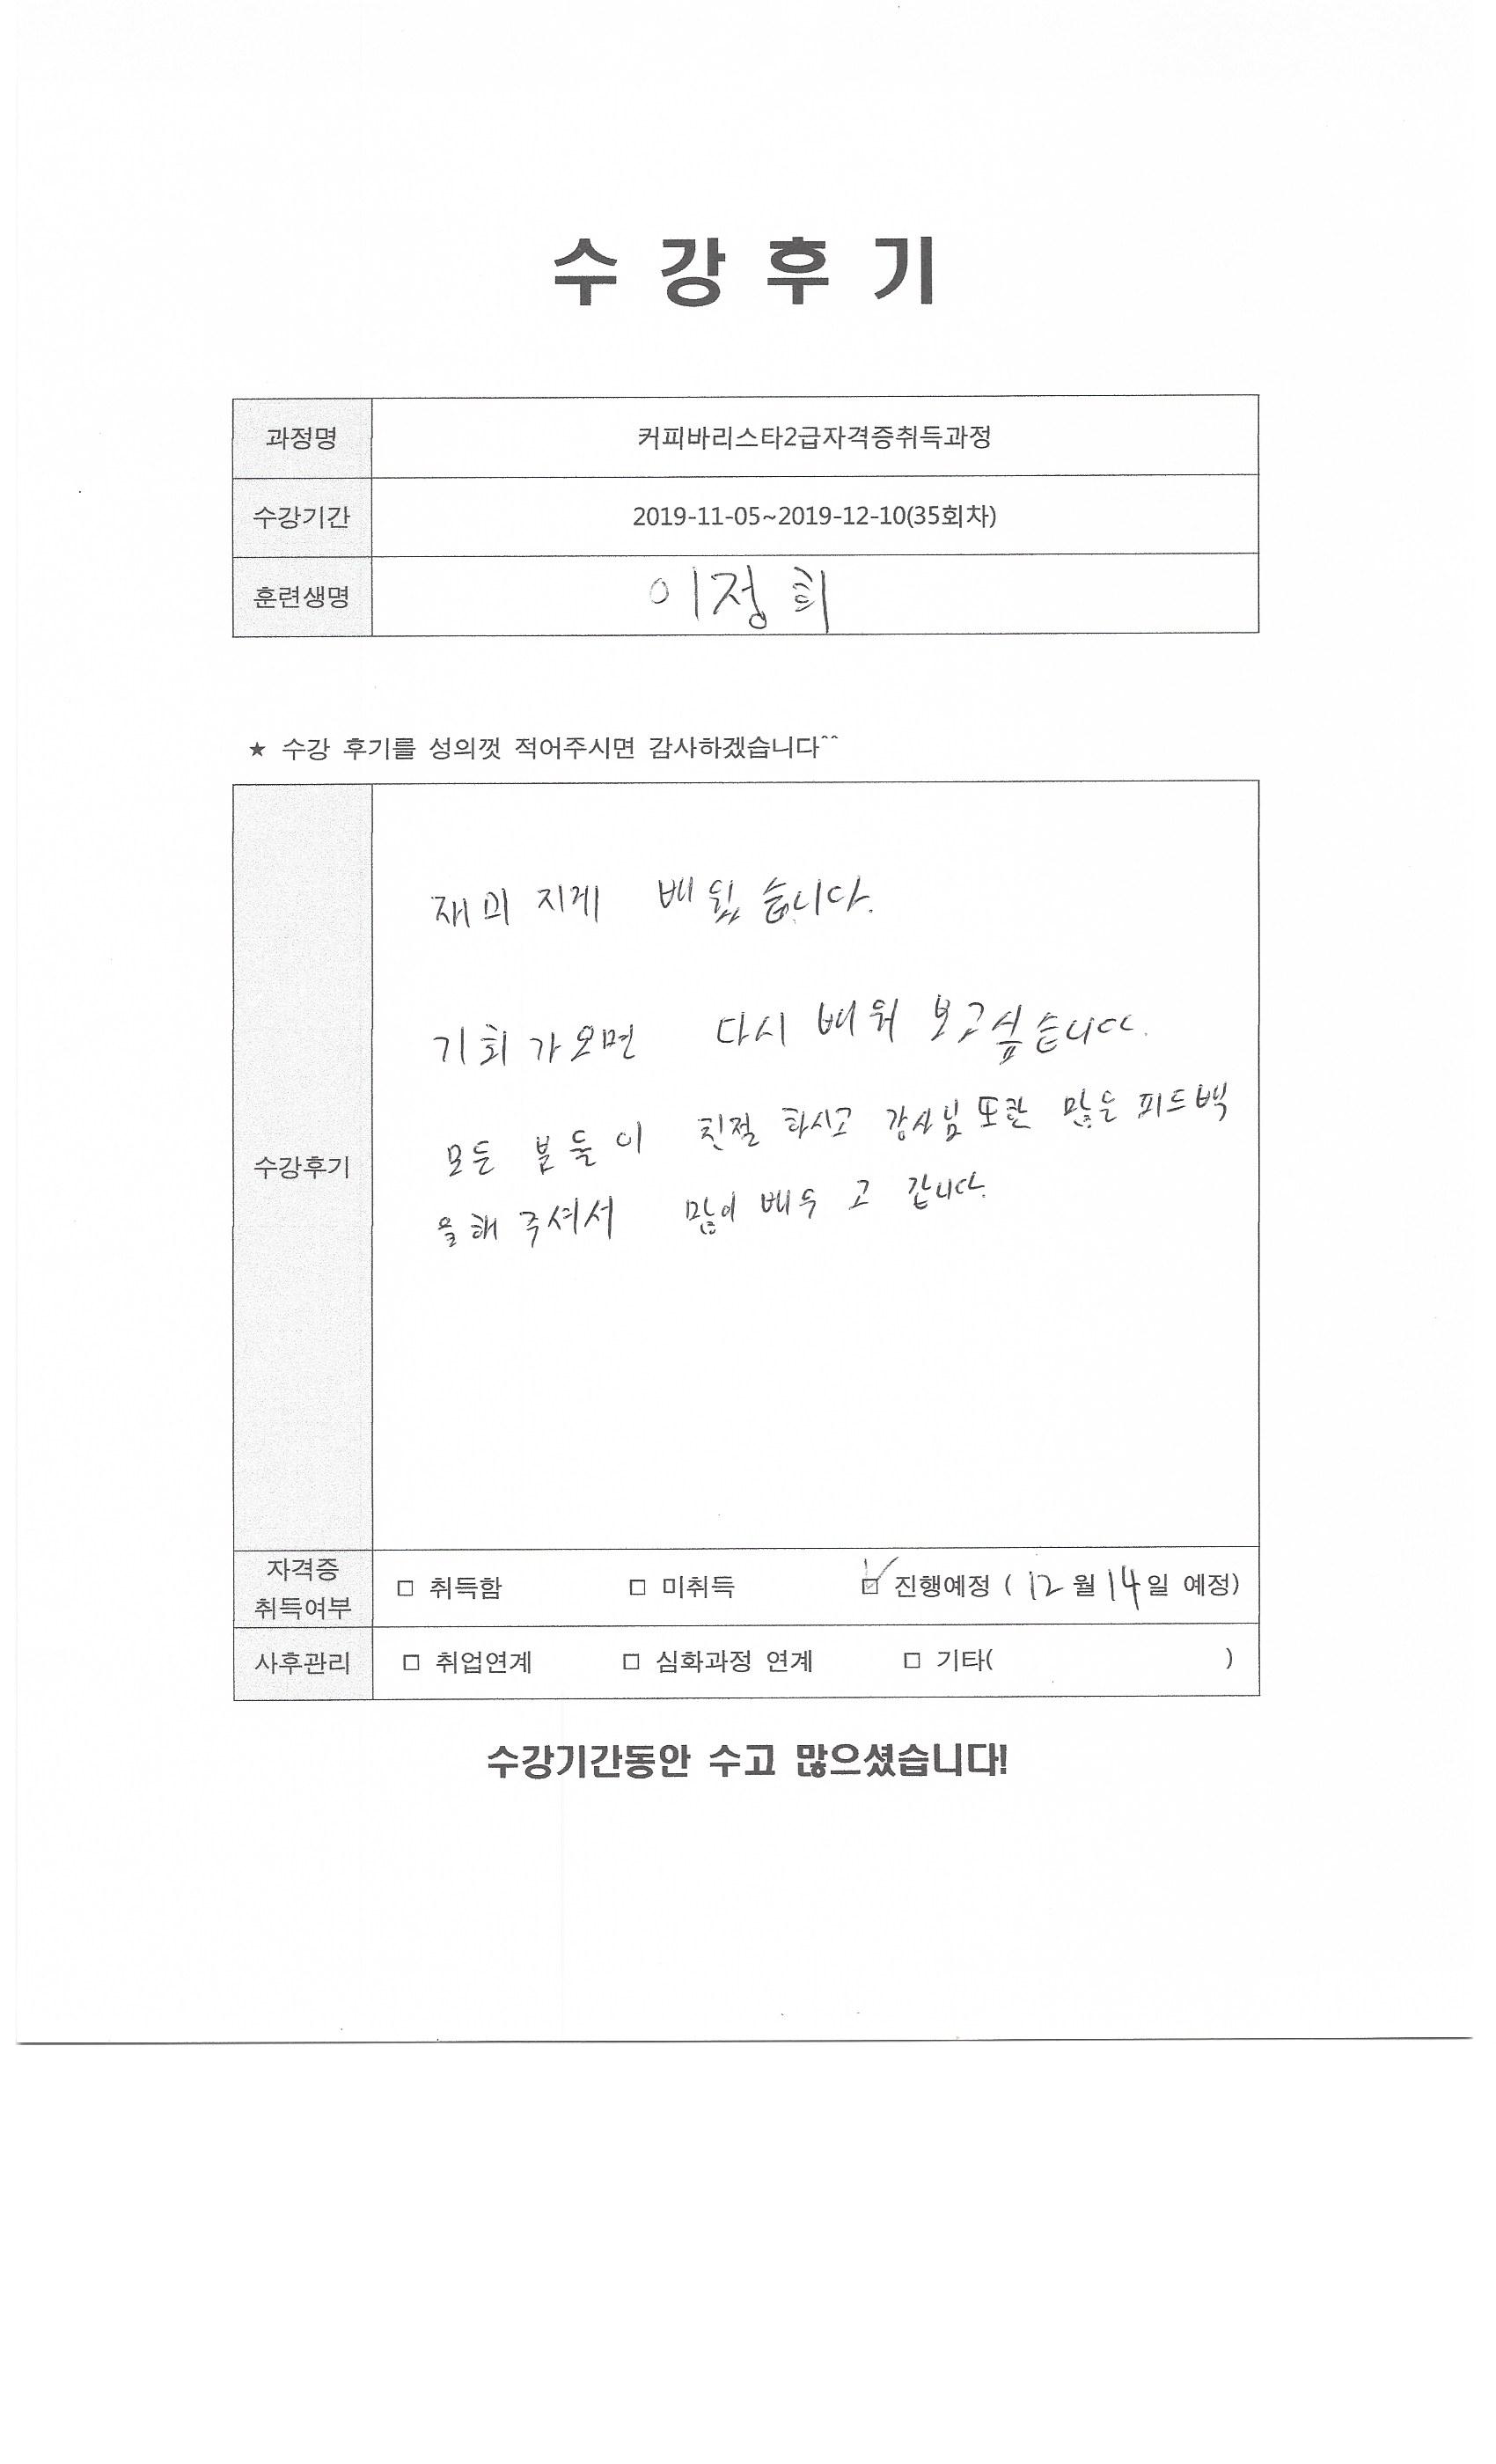 수 강 후 기
과정명 커피바리스타2급자격증취득과정
수강기간 2019-11-05~2019-12-10(35회차)
훈련생명 이정희
★ 수강 후기를 성의껏 적어주시면 감사하겠습니다^^
재미 지게 배웠습니다.
기회가오면 다시 배워 보고싶습니다.
모든 분들이 친절 하시고 강사님 또한 많은 피드백
수강후기
을해 주셔서 많이 배우 고 갑니다.
자격증
취득여부
□ 취득함 □ 미취득 ☑ 진행예정 ( 12 월 14 일 예정)
사후관리 □ 취업연계 □ 심화과정 연계 □ 기타( )
수강기간동안 수고 많으셨습니다!